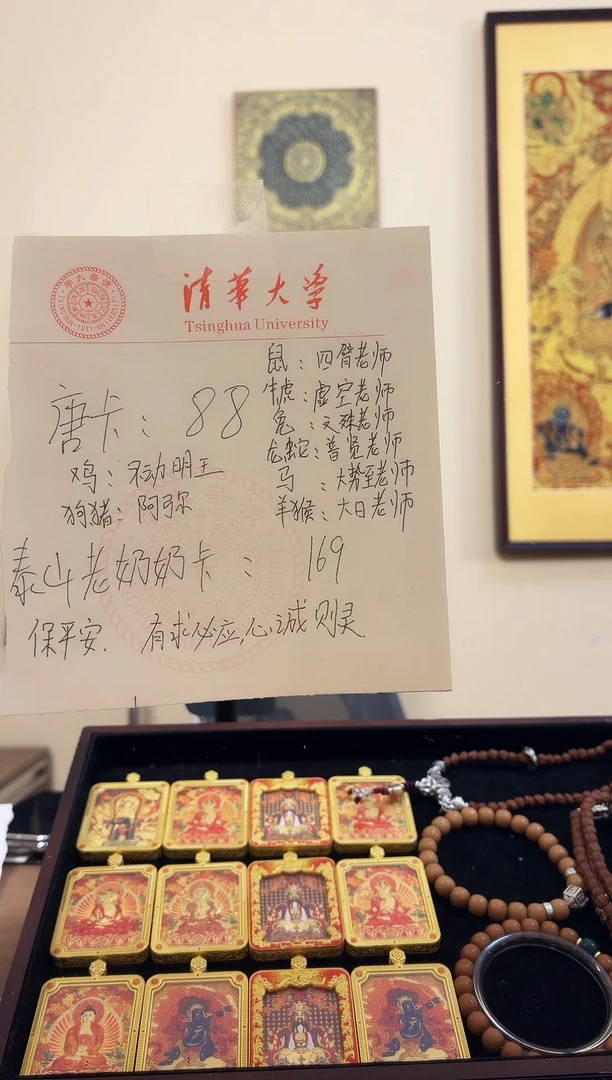 清华大学
Tsinghua University
鼠：四臂老师
牛虎：虚空老师
兔：文殊老师
龙蛇：普贤老师
马：大势至老师
羊猴：大日老师
唐卡：88
鸡：不动明王
狗猪：阿弥
泰山老奶奶卡：169
保平安．有求必应，心诚则灵．